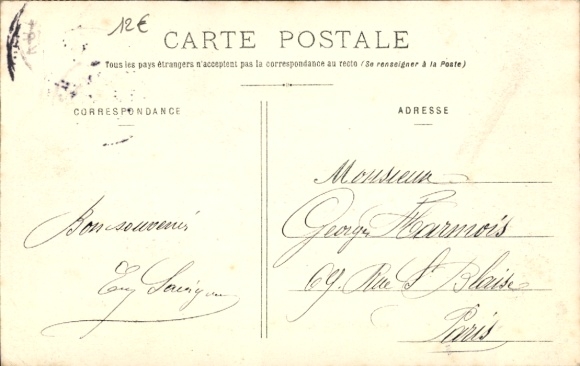 12€
CARTE POSTALE
Tous les pays étrangers n'acceptent pas la correspondance au recto (Se renseigner à la Poste)
CORRESPONDANCE
ADRESSE
Bon souvenir
Monsieur
Georges Harmois
69. Rue St Blaise
Paris